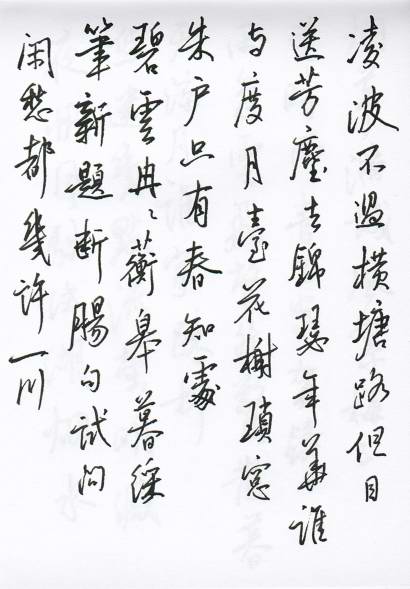 凌波不過橫塘路但目
送芳塵去錦瑟年華誰
與度月臺花榭瑣窓
朱户只有春知處
碧雲冉冉蘅皋暮綵
筆新題断腸句试问
闲愁都幾许一川